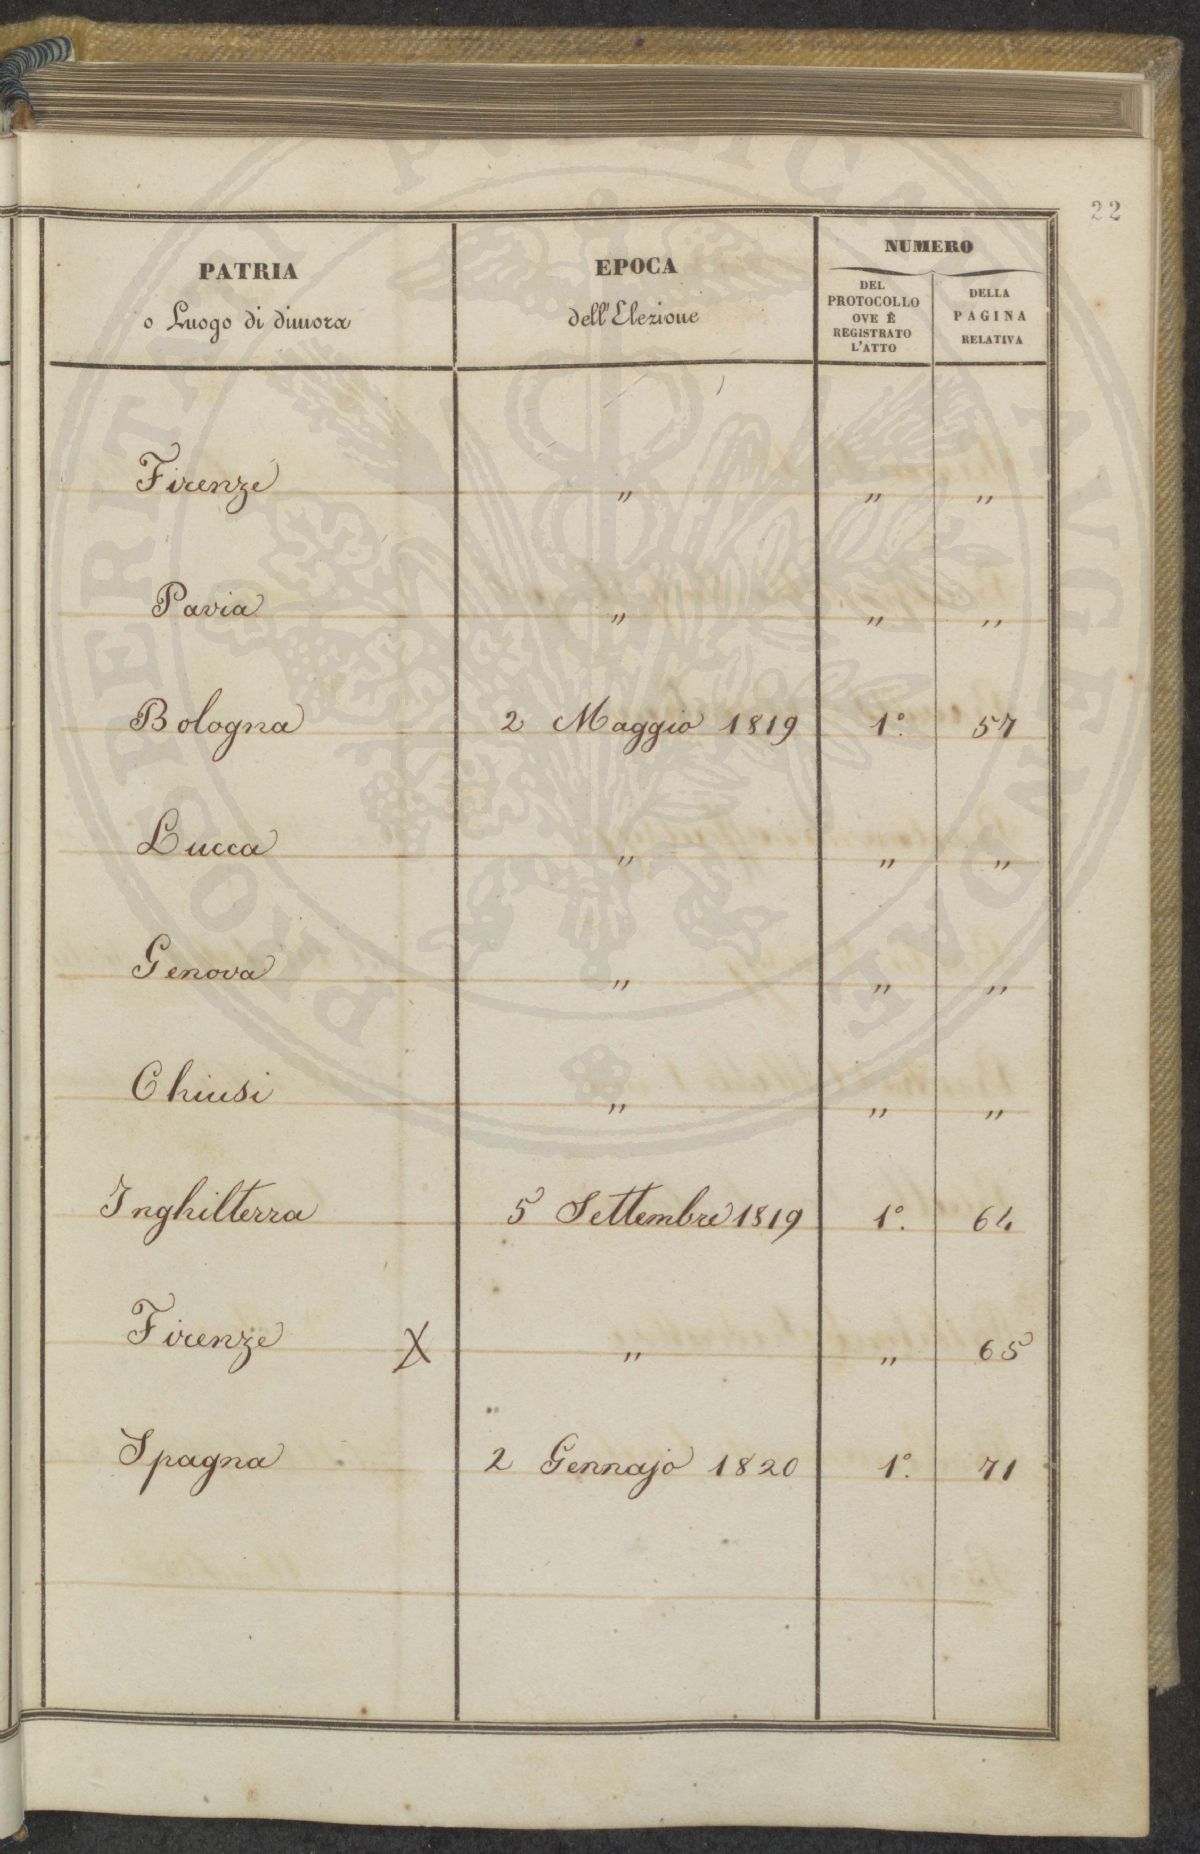 22
PATRIA
o Luogo di dimora
EPOCA
dell'Elezione
NUMERO
DEL
PROTOCOLLO
OVE È
REGISTRATO
L'ATTO
DELLA
PAGINA
RELATIVA
Firenze " " "
Pavia " " "
Bologna 2 Maggio 1819 1° 57
Lucca " " "
Genova " " "
Chiusi " " "
Inghilterra 5 Settembre 1819 1°. 64
Firenze X " " 65
Spagna 2 Gennajo 1820 1°. 71
PROSPERITATI PUBLICAE AVGENDAE